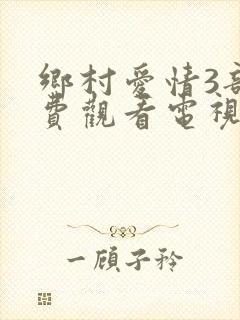 鄉村愛情3
費觀看電視
一顧子矜